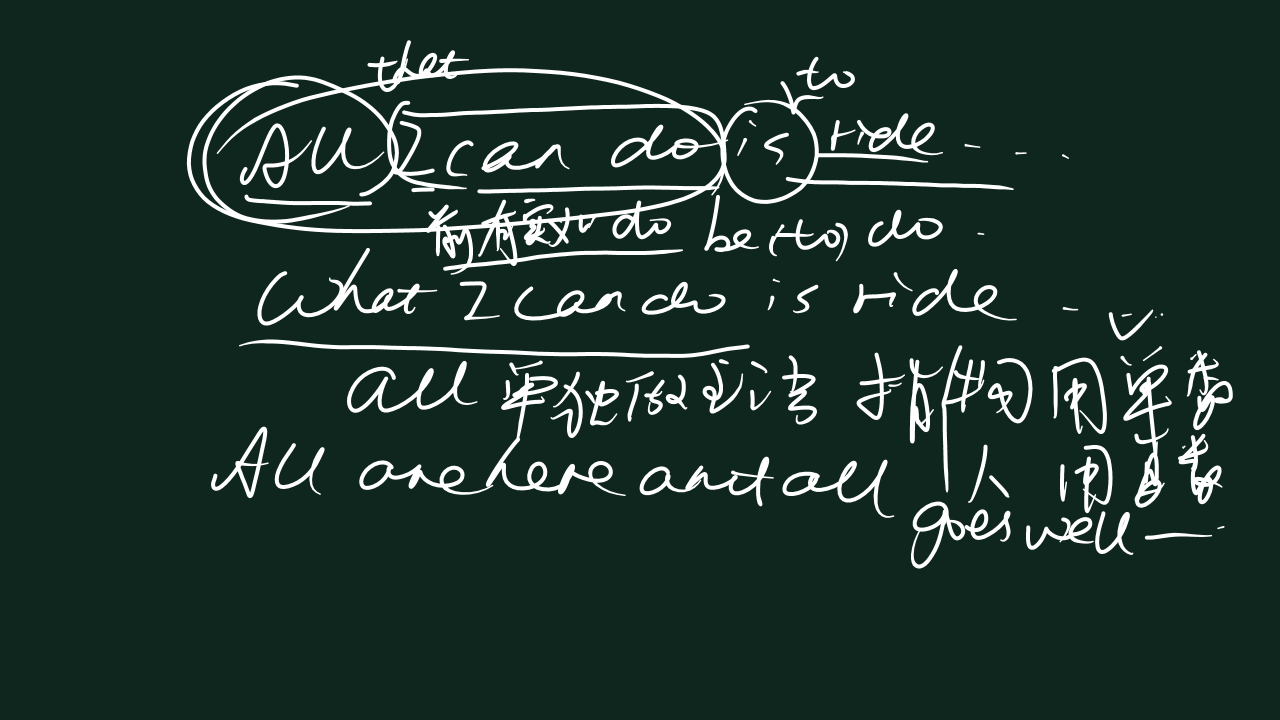 that to
All I can do is ride ....
前有实义do be (to) do .
What I can do is ride ...
all 单独做主语 指物用单数
人 用复数
All are here and all
goes well —.